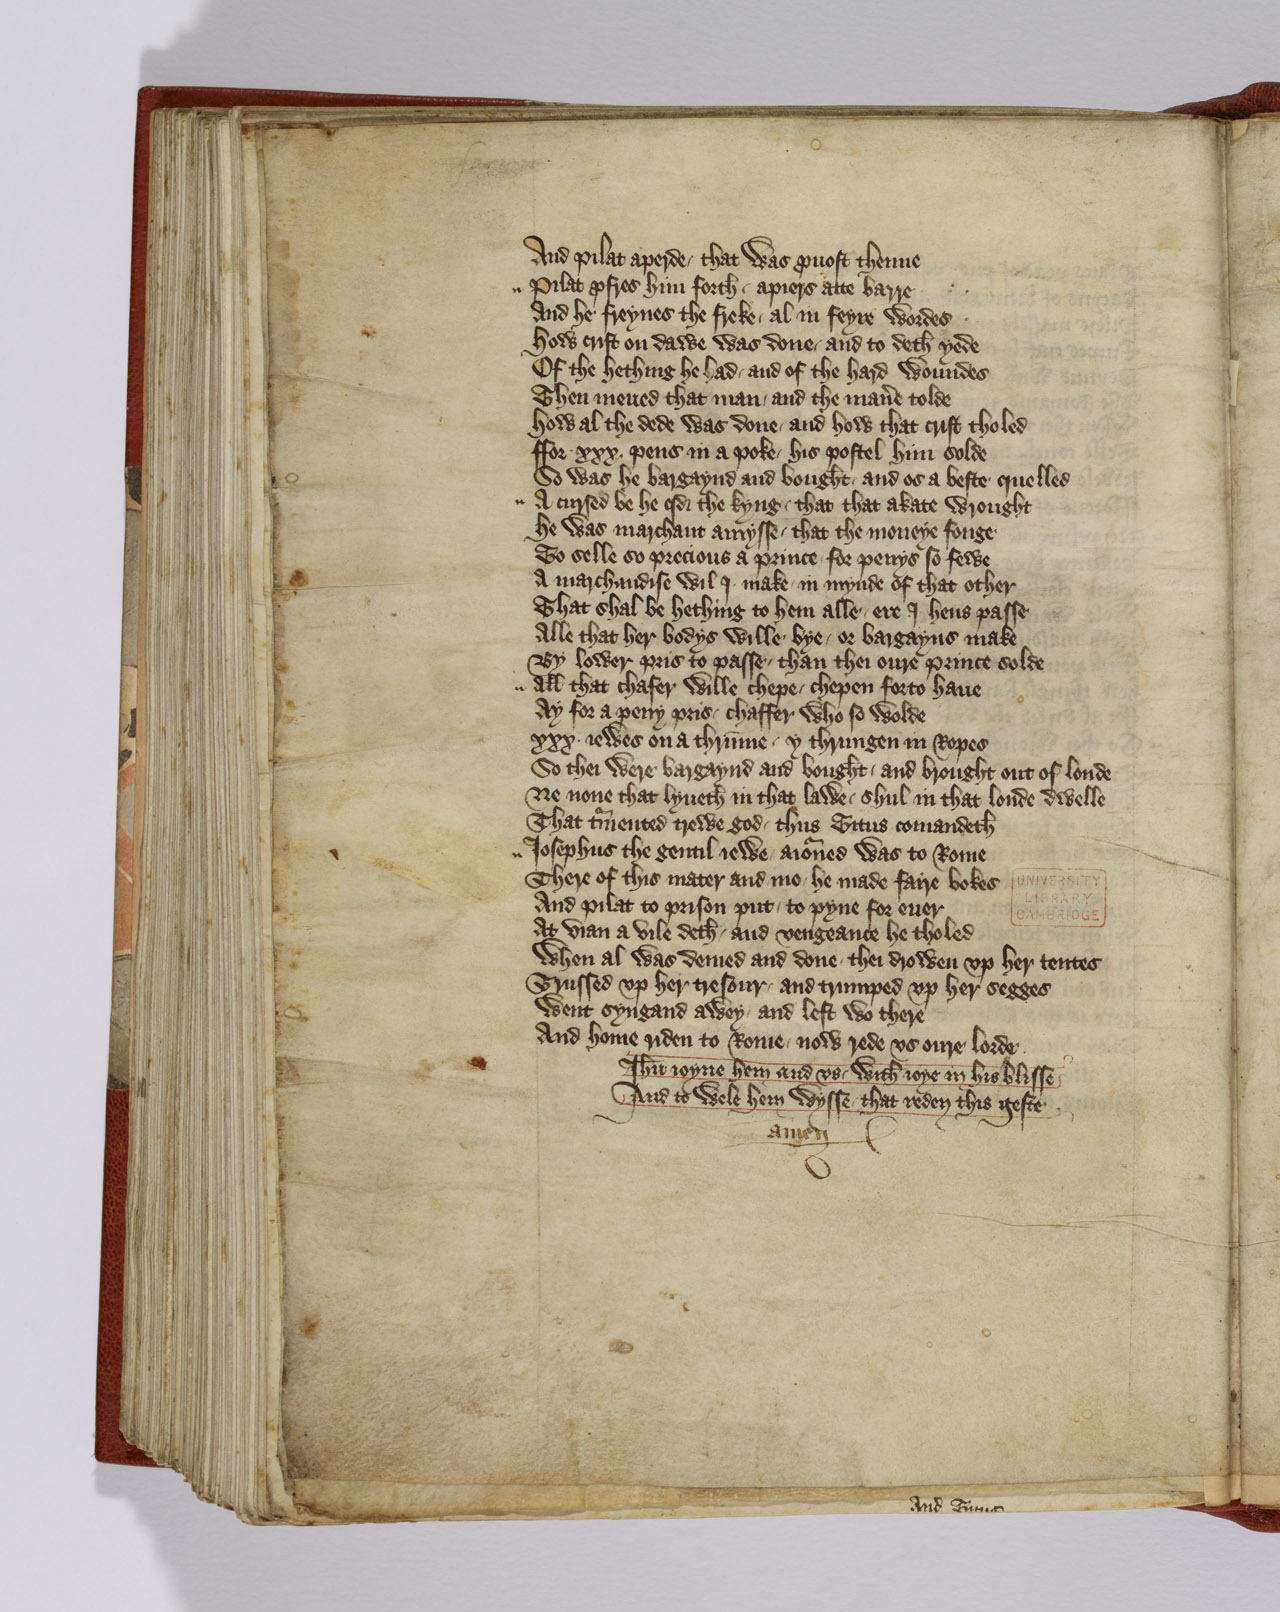 And pilat aperde / that was prouost thenne
Pilat profres him forth / apiers atte barre
And he freynes the freke / al in feyre wordes
How crist on dawe was done / and to deth yede
Of the hething he had / and of the hard woundes
Then meued that man / and the manere tolde
how al the dede was done / and how that crist tholed
ffor xxx. pens in a poke / his postel him solde
So was he bargaynd and bought / and os a beste quelled
A cursed be he qd the kyng / that that akate wrought
he was marchant amysse / that the moneye fonge
To selle so precious a prince / for penys so fewe
A marchandise wil I make / in mynde of that other
That shal be hething to hem alle / ere I hens passe
Alle that her bodys wille bye / or bargayns make
By lower pris to passe / than thei oure prince solde
All that chafer wille chepe / chepen forto haue
Ay for a peny pris / chaffer who so wolde
xxx. iewes on a thrumme / y thrungen in Ropes
So thei were bargaynd and bought / and brought out of londe
Ne none that lyueth in that lawe / shul in that londe dwelle
That tormented trewe god / thus Titus comandeth
Josephus the gentil iewe / aioned was to Rome
There of this mater and mo / he made faire bokes
And pilat to prison put / to pyne for euer
At vian a vile deth / and vengeance he tholed
When al was demed and done / thei drowen vp her tentes
Trussed vp her tresour / and trumped vp her segges
went syngand awey / and left wo there
And home riden to Rome / now rede vs oure lorde
Jhu ioyne hem and vs / with ioye in his blisse
And to wele hem wysse / that reden this geste
amen
UNIVERSITY
LIBRARY
CAMBRIDGE
And Titus